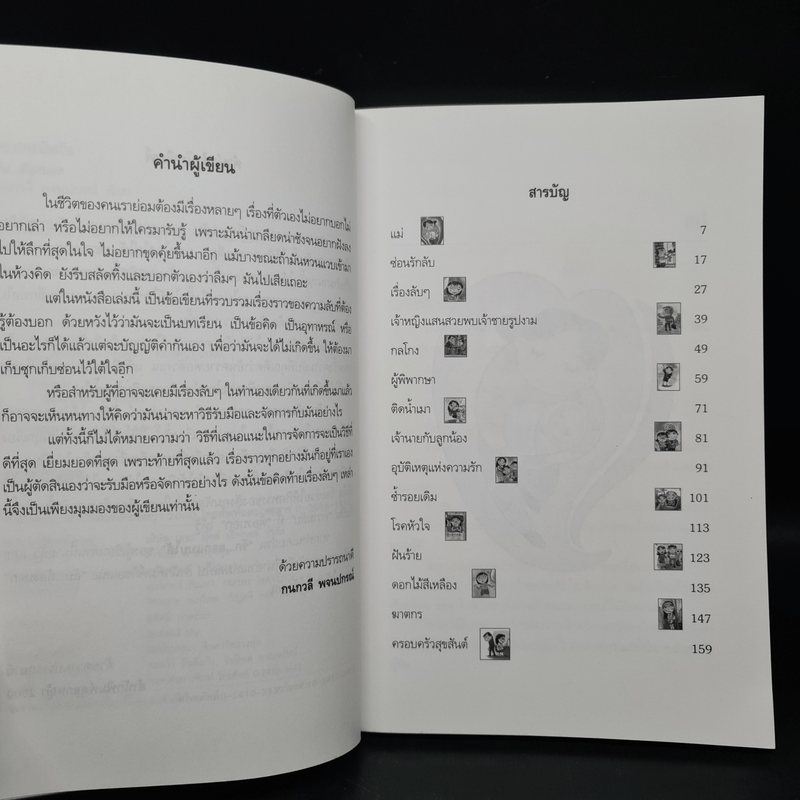 คำนำผู้เขียน
ในชีวิตของคนเราย่อมต้องมีเรื่องหลายๆ เรื่องที่ตัวเองไม่อยากบอกไม่
อยากเล่า หรือไม่อยากให้ใครมารับรู้ เพราะมันน่าเกลียดน่าชังจนอยากฝังลง
ไปให้ลึกที่สุดในใจ ไม่อยากขุดคุ้ยขึ้นมาอีก แม้บางขณะถ้ามันหวนแวบเข้ามา
ในห้วงคิด ยังรีบสลัดทิ้งและบอกตัวเองว่าลืมๆ มันไปเสียเถอะ
แต่ในหนังสือเล่มนี้ เป็นข้อเขียนที่รวบรวมเรื่องราวของความลับที่ต้อง
รู้ต้องบอก ด้วยหวังไว้ว่ามันจะเป็นบทเรียน เป็นข้อคิด เป็นอุทาหรณ์ หรือ
เป็นอะไรก็ได้แล้วแต่จะบัญญัติคำกันเอง เพื่อว่ามันจะได้ไม่เกิดขึ้น ให้ต้องมา
เก็บซุกเก็บซ่อนไว้ใต้ใจอีก
หรือสำหรับผู้ที่อาจจะเคยมีเรื่องลับๆ ในทำนองเดียวกันที่เกิดขึ้นมาแล้ว
ก็อาจจะเห็นหนทางให้คิดว่ามันน่าจะหาวิธีรับมือและจัดการกับมันอย่างไร
แต่ทั้งนี้ก็ไม่ได้หมายความว่า วิธีที่เสนอแนะในการจัดการจะเป็นวิธีที่
ดีที่สุด เยี่ยมยอดที่สุด เพราะท้ายที่สุดแล้ว เรื่องราวทุกอย่างมันก็อยู่ที่เราเอง
เป็นผู้ตัดสินเองว่าจะรับมือหรือจัดการอย่างไร ดังนั้นข้อคิดท้ายเรื่องลับๆ เหล่า
นี้จึงเป็นเพียงมุมมองของผู้เขียนเท่านั้น
ด้วยความปรารถนาดี
กนกวลี พจนปกรณ์
สารบัญ
แม่ 7
ซ่อนรักลับ 17
เรื่องลับๆ 27
เจ้าหญิงแสนสวยพบเจ้าชายรูปงาม 39
กลโกง 49
ผู้พิพากษา 59
ติดน้ำเมา 71
เจ้านายกับลูกน้อง 81
อุบัติเหตุแห่งความรัก 91
ซ้ำรอยเดิม 101
โรคหัวใจ 113
ฝันร้าย 123
ดอกไม้สีเหลือง 135
ฆาตกร 147
ครอบครัวสุขสันต์ 159